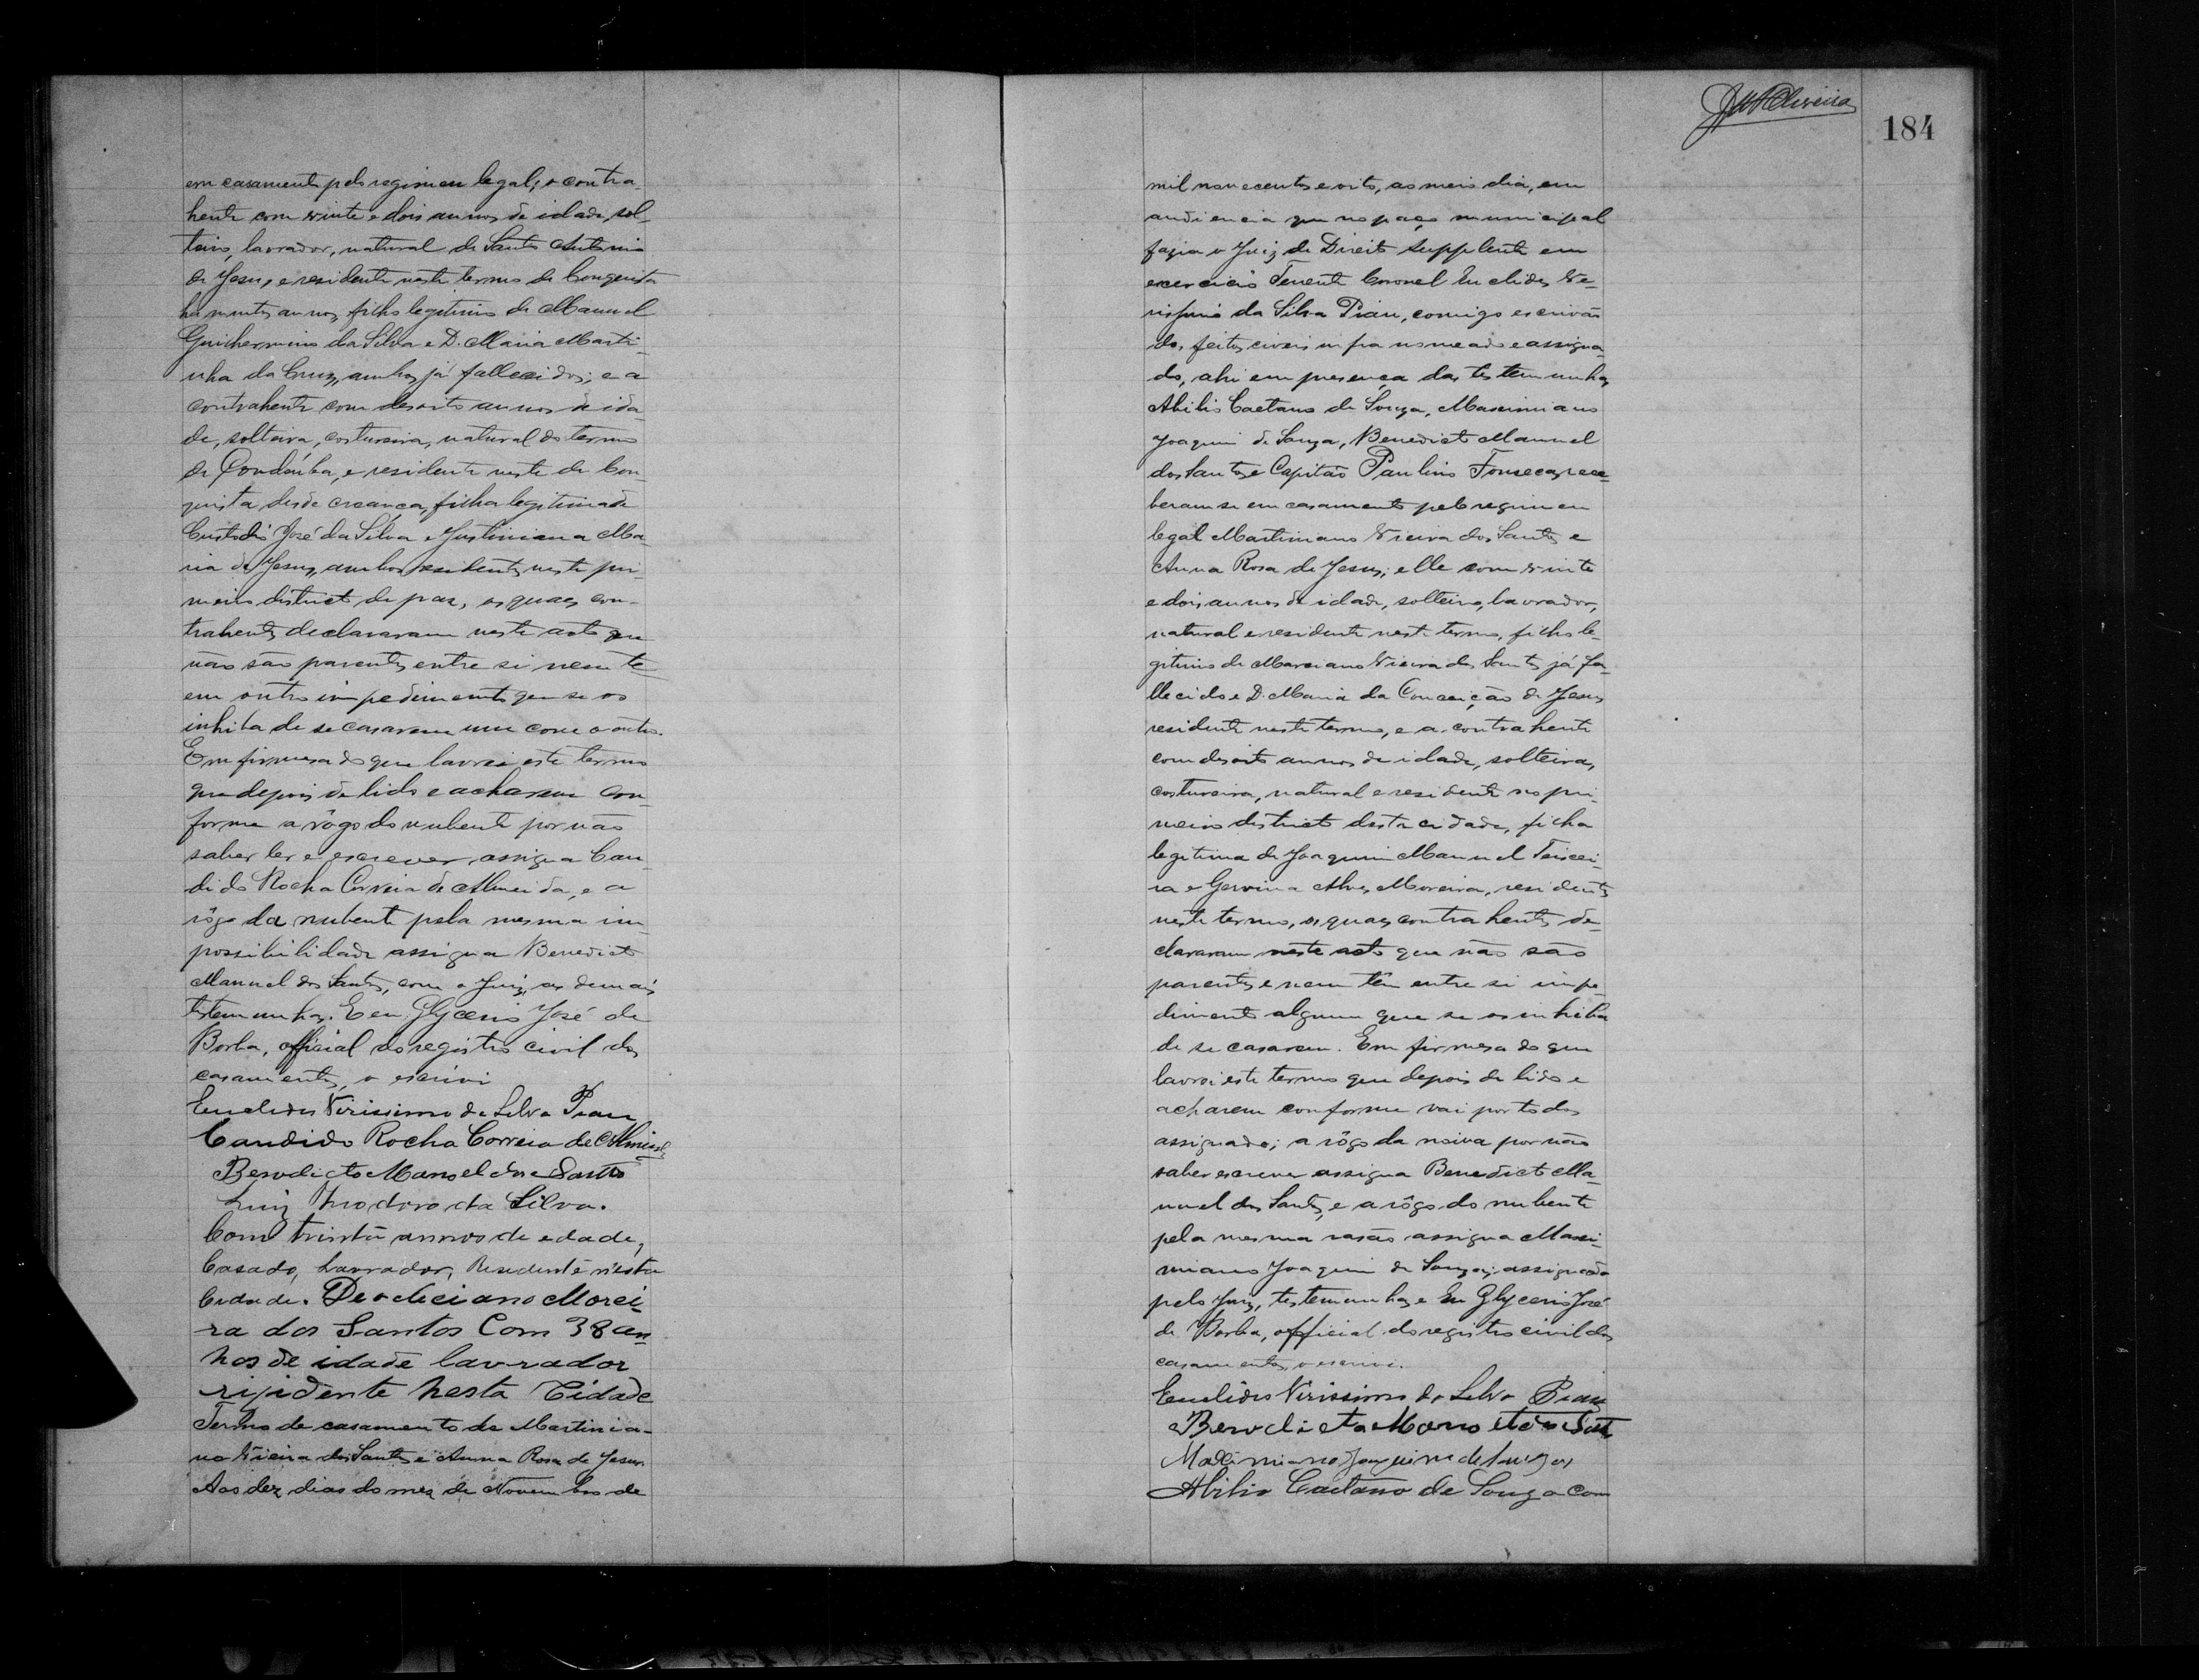 em casamento pelo regimen legal; o contra-
hente com vinte e dois annos de idade, sol-
teiro, lavrador, natural de Santo Antonio
de Jesus, e residente neste termo de Conquista
há muitos annos, filho legitimo de Manuel
Guilhermino da Silva e D. Maria Marti-
nha da Cruz, ambos já fallecidos; e a
contrahente com desoito annos de ida-
de, solteira, costureira, natural do termo
de Condeúba, e residente neste de Con-
quista desde creança, filha legitima de
Custodio José da Silva e Justiniana Ma-
ria de Jesus, ambos residentes neste pri-
meiro districto de paz, os quaes con-
trahentes declararam neste acto que
não são parentes entre si nem te-
em outro impedimento que se os
inhiba de se casarem um com o outro.
Em firmesa do que lavrei este termo
que depois de lido e acharem con-
forme a rôgo do nubente por não
saber ler e escrever, assigna Can-
dido Rocha Correia de Almeida, e a
rôgo da nubente pela mesma im-
possibilidade assigna Benedicto
Manuel dos Santos, com o Juiz, as demais
testemunhas. E eu, Glycerio José de
Borba, official do registro civil dos
casamentos, o escrivi
Euclides Virissimo da Silva Piau
Candido Rocha Correia de Almeida
Benedicto Manoel dos Santos
Luiz Theodoro da Silva.
Com trinta annos de edade,
Casado, Lavrador, Residente n'esta
Cidade. Deocleciano Morei-
ra dos Santos Com 38 an-
nos de idade lavrador
rizidente nesta Cidade
Termo de casamento de Martinia-
no Vieira dos Santos e Anna Rosa de Jesus.
Aos dez dias do mez de Novembro de
184
mil novecentos e oito, ao meio dia, em
audiencia que no paço municipal
fazia o Juiz de Direito Supplente em
exercicio Tenente Coronel Euclides Ve-
rissimo da Silva Piau, comigo escrivão
dos feitos civeis infra nomeado e assigna-
do, ahi em presença das testemunhas
Abilio Caetano de Souza, Maximiano
Joaquim de Souza, Benedicto Manuel
dos Santos e Capitão Paulino Fonseca, rece-
beram-se em casamento pelo regimen
legal Martiniano Vieira dos Santos e
Anna Rosa de Jesus; elle com vinte
e dois annos de idade, solteiro, lavrador,
natural e residente neste termo, filho le-
gitimo de Marciano Vieira dos Santos já fa-
llecido e D. Maria da Conceição de Jesus
residente neste termo, e a contrahente
com desoito annos de idade, solteira,
costureira, natural e residente no pri-
meiro districto desta cidade, filha
legitima de Joaquim Manuel Teixei-
ra e Gervina Alves Moreira, residentes
neste termo, os quaes contrahentes de-
clararam neste acto que não são
parentes e nem têm entre si impe-
dimento algum que se os inhiba
de se casarem. Em firmesa do que
lavrei este termo que depois de lido e
acharem conforme vai por todos
assignado; a rôgo da noiva por não
saber escrever assigna Benedicto Ma-
nuel dos Santos, e a rôgo do nubente
pela mesma rasão assigna Maxi-
miano Joaquim de Souza; assignado
pelo Juiz, testemunhas e Eu Glycerio José
de Borba, official do registro civil dos
casamentos o escrivi.
Euclides Virissimo da Silva Piau
Benedicto Manoel dos Sant
Maximiano Joaquim de Souza
Abilio Caetano de Souza Com